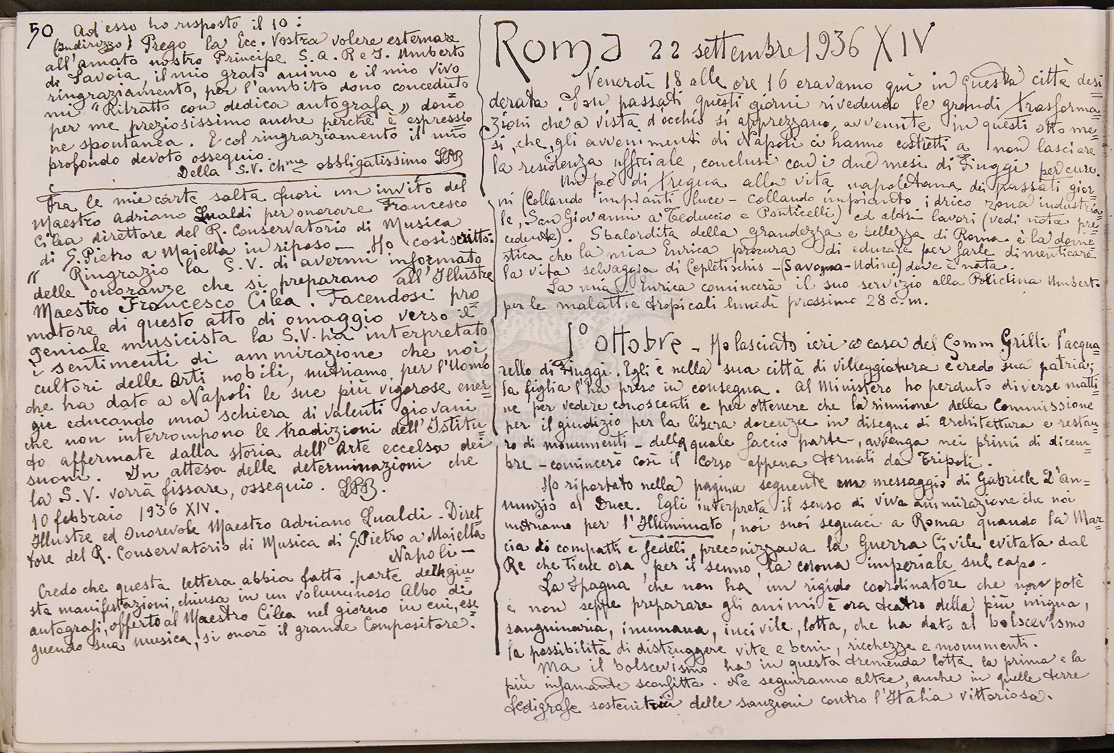 50 Ad esso ho risposto il 10:
(Indirizzo) Prego la Ecc. Vostra volere esternare
all'amato nostro Principe S.A.R e I. Umberto
di Savoia, il mio grato animo e il mio vivo
ringraziamento, per l'ambito dono conceduto
mi "Ritratto con dedica autografa" dono
per me preziosissimo anche perchè è espressio=
ne spontanea. E col ringraziamento il mio
profondo devoto ossequio.
Della S.V. Ch.ma obbligatissimo
Fra le mie carte salta fuori un invito del
Maestro Adriano Lualdi per onorare Francesco
Cilea direttore del R. Conservatorio di Musica
di S. Pietro a Majella in riposo - Ho così scritto:
" Ringrazio la S.V. di avermi informato
delle onoranze che si preparano all'Illustre
Maestro Francesco Cilea. Facendosi pro
motore di questo atto di omaggio verso il
geniale musicista la S.V. ha interpretato
i sentimenti di ammirazione che noi,
cultori delle Arti nobili, nutriamo, per l'Uomo
che ha dato a Napoli le sue più vigorose ener=
gie educando una schiera di valenti giovani
che non interrompono le tradizioni dell'Istitu
to affermate dalla storia dell'Arte eccelsa dei
suoni. In attesa delle determinazioni che
la S.V. vorrà fissare, ossequio.
10 febbraio 1936 XIV.
Illustre ed Onorevole Maestro Adriano Lualdi - Diret
tore del R. Conservatorio di Musica di S. Pietro a Majella
Napoli -
Credo che questa lettera abbia fatto parte delle giu=
ste manifestazioni, chiusa in un voluminoso Albo di
autografi, offerto al Maestro Cilea nel giorno in cui, ese
guendo sua musica, si onorò il grande Compositore.
Roma 22 settembre 1936 XIV
Venerdì 18 alle ore 16 eravamo qui in questa città desi
derata. Son passati questi giorni rivedendo le grandi trasforma=
zioni che a vista d'occhio si apprezzano, avvenute in questi otto me=
si, che, gli avvenimenti di Napoli ci hanno costretti a non lasciare
la residenza ufficiale, conclusi con i due mesi di Fiuggi per cure.
Un po' di tregua alla vita napoletana di passati gior=
ni Collaudo impianti luce - collaudo impianto idrico zona industria=
le, San Giovanni a Teduccio e Ponticelli) ed altri lavori (vedi nota pre=
cedente). Sbalordita della grandezza e bellezza di Roma è la dome=
stica che la mia Enrica procura di educare per farle dimenticare
la vita selvaggia di Cepletischis - (Savogna - Udine) dove è nata.
La mia Enrica comincerà il suo servizio alla Policlina Umberto
per le malattie tropicali lunedì prossimo 28 c.m.
1° ottobre - Ho lasciato ieri a casa del Comm Grilli l'acqua=
rello di Fiuggi. Egli è nella sua città di villeggiatura e credo sua patria;
la figlia l'ha preso in consegna. Al Ministero ho perduto diverse matti=
ne per vedere conoscenti e per ottenere che la riunione della Commissione
per il giudizio per la libera docenza in disegno di architettura e restau=
ro di monumenti - della quale faccio parte -, avvenga nei primi di dicem=
bre - comincerò così il corso appena tornati da Tripoli.
Ho riportato nella pagina seguente un messaggio di Gabriele D'An=
nunzio al Duce. Egli interpreta il senso di viva ammirazione che noi
nutriamo per l'Illuminato, noi suoi seguaci a Roma quando la Mar=
cia di compatti e fedeli preconizzava la Guerra Civile evitata dal
Re che tiene ora, per il senno, la corona imperiale sul capo.
La Spagna che non ha un rigido coordinatore che non potè
e non seppe preparare gli animi è ora teatro della più iniqua,
sanguinaria, inumana, incivile, lotta, che ha dato al bolscevismo
la possibilità di distruggere vite e beni, ricchezze e monumenti.
Ma il bolscevismo ha in questa tremenda lotta la prima e la
più infamante sconfitta. Ne seguiranno altre, anche in quelle terre
sedigrafe sostenitrici delle sanzioni contro l'Italia vittoriosa.